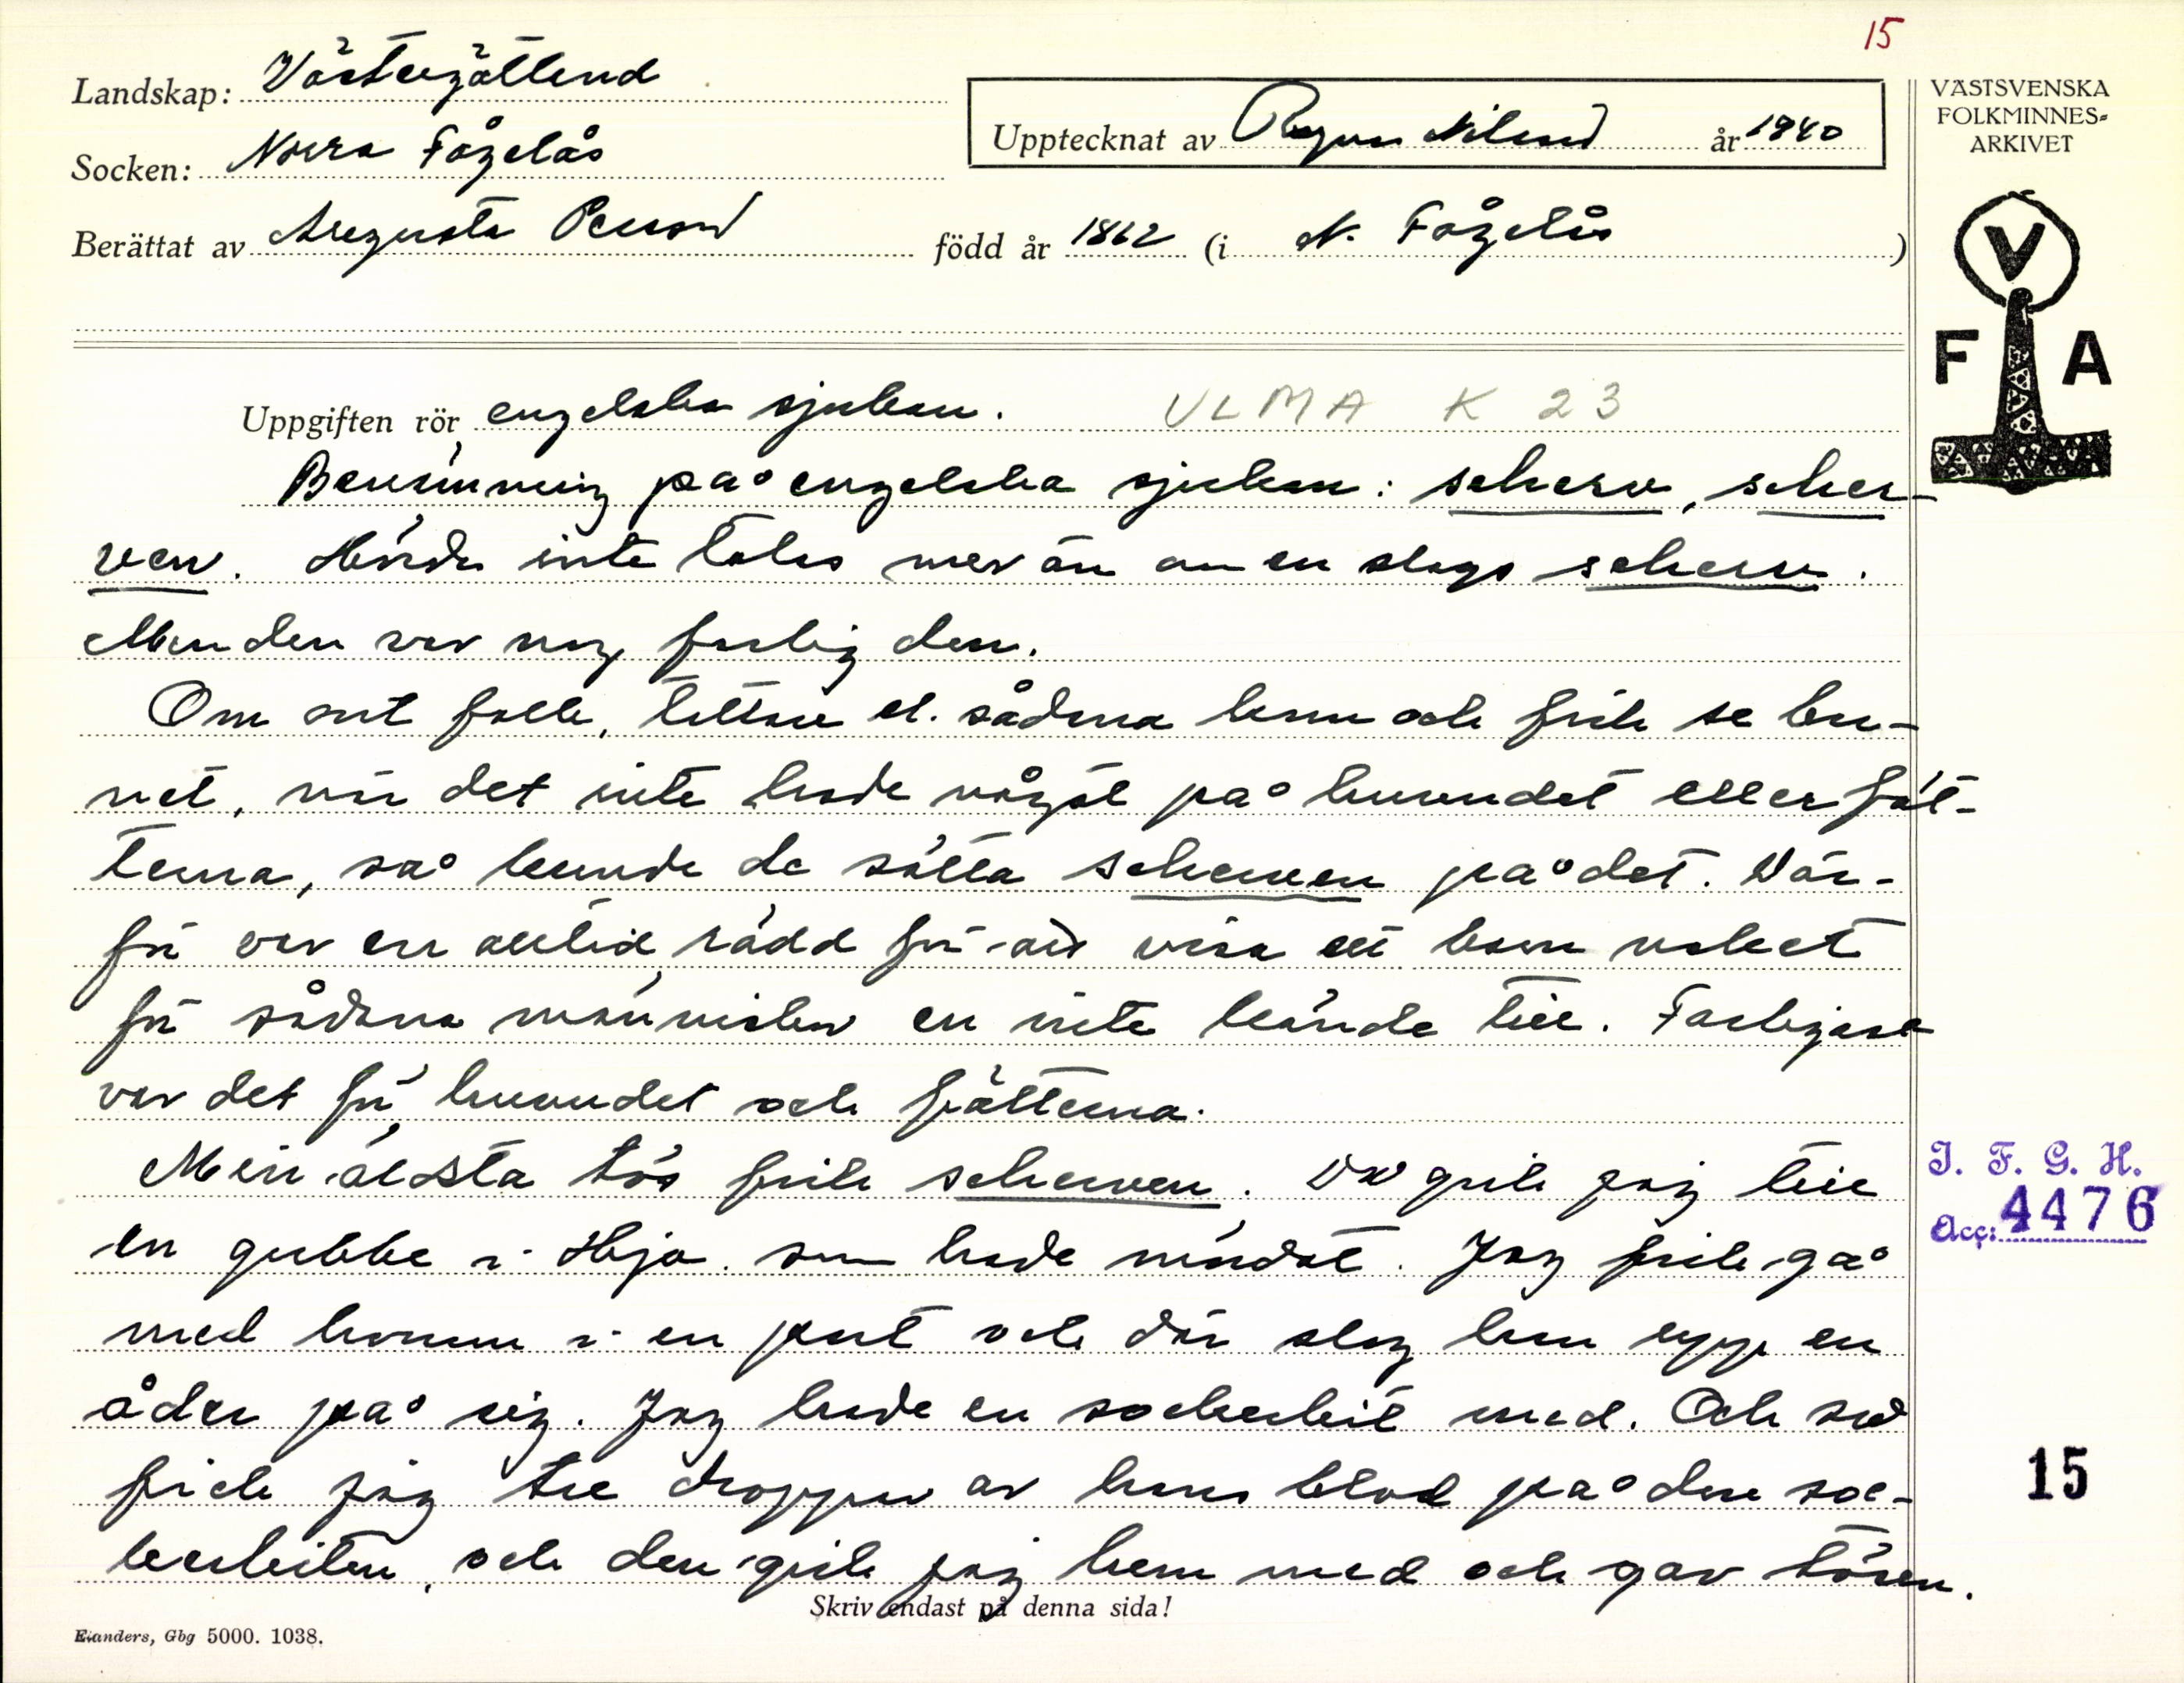 15
Landskap: Västergötland
Socken: Norra Fågelås
Upptecknat av Ragnar Nilsson år 1940
Berättat av Augusta Persson född år 1862 (i N. Fågelås)
VÄSTSVENSKA
FOLKMINNES-
ARKIVET
V
F A
Uppgiften rör engelska sjukan. ULMA K 23
Benämning på engelska sjukan: skerva, sker-
ven. Hörde inte talas mer än om en slags skerva.
Men den var nog farlig den.
Om ont folk, tattare el. sådana kom och fick se bar-
net, när det inte hade något på huvudet eller föt-
terna, så kunde de sätta skerven på det. Där-
för var en alltid rädd för att visa ett barn naket
för sådana människor en inte kände till. Farligast
var det för huvudet och fötterna.
Min äldsta tös fick skerven. Då gick jag till
en gubbe i Hjo som hade rådat. Jag fick gå
med honom i en port och där slog han upp en
åder på sig. Jag hade en sockerbit med. Och så
fick jag tre droppar av hans blod på den soc-
kerbiten, och den gick jag hem med och gav tösen.
I. F. G. H.
Acc: 4476
15
Skriv endast på denna sida!
Elanders, Gbg 5000. 1038.